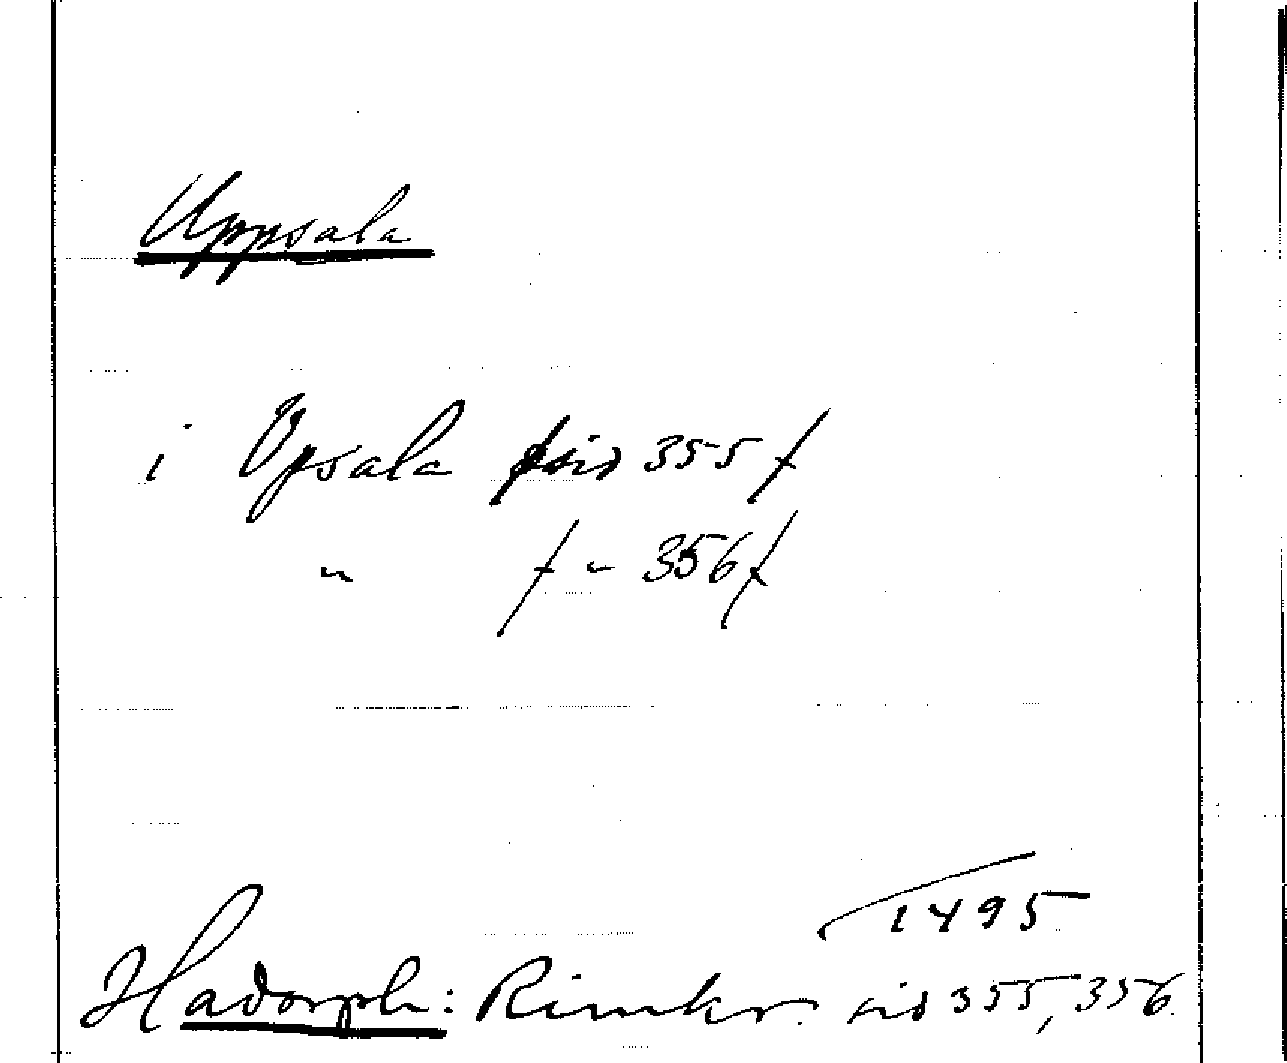 Uppsala
i Upsala sid 355 f
" f " 356 f
1495
Hadorph: Rimkr. sid 355, 356.